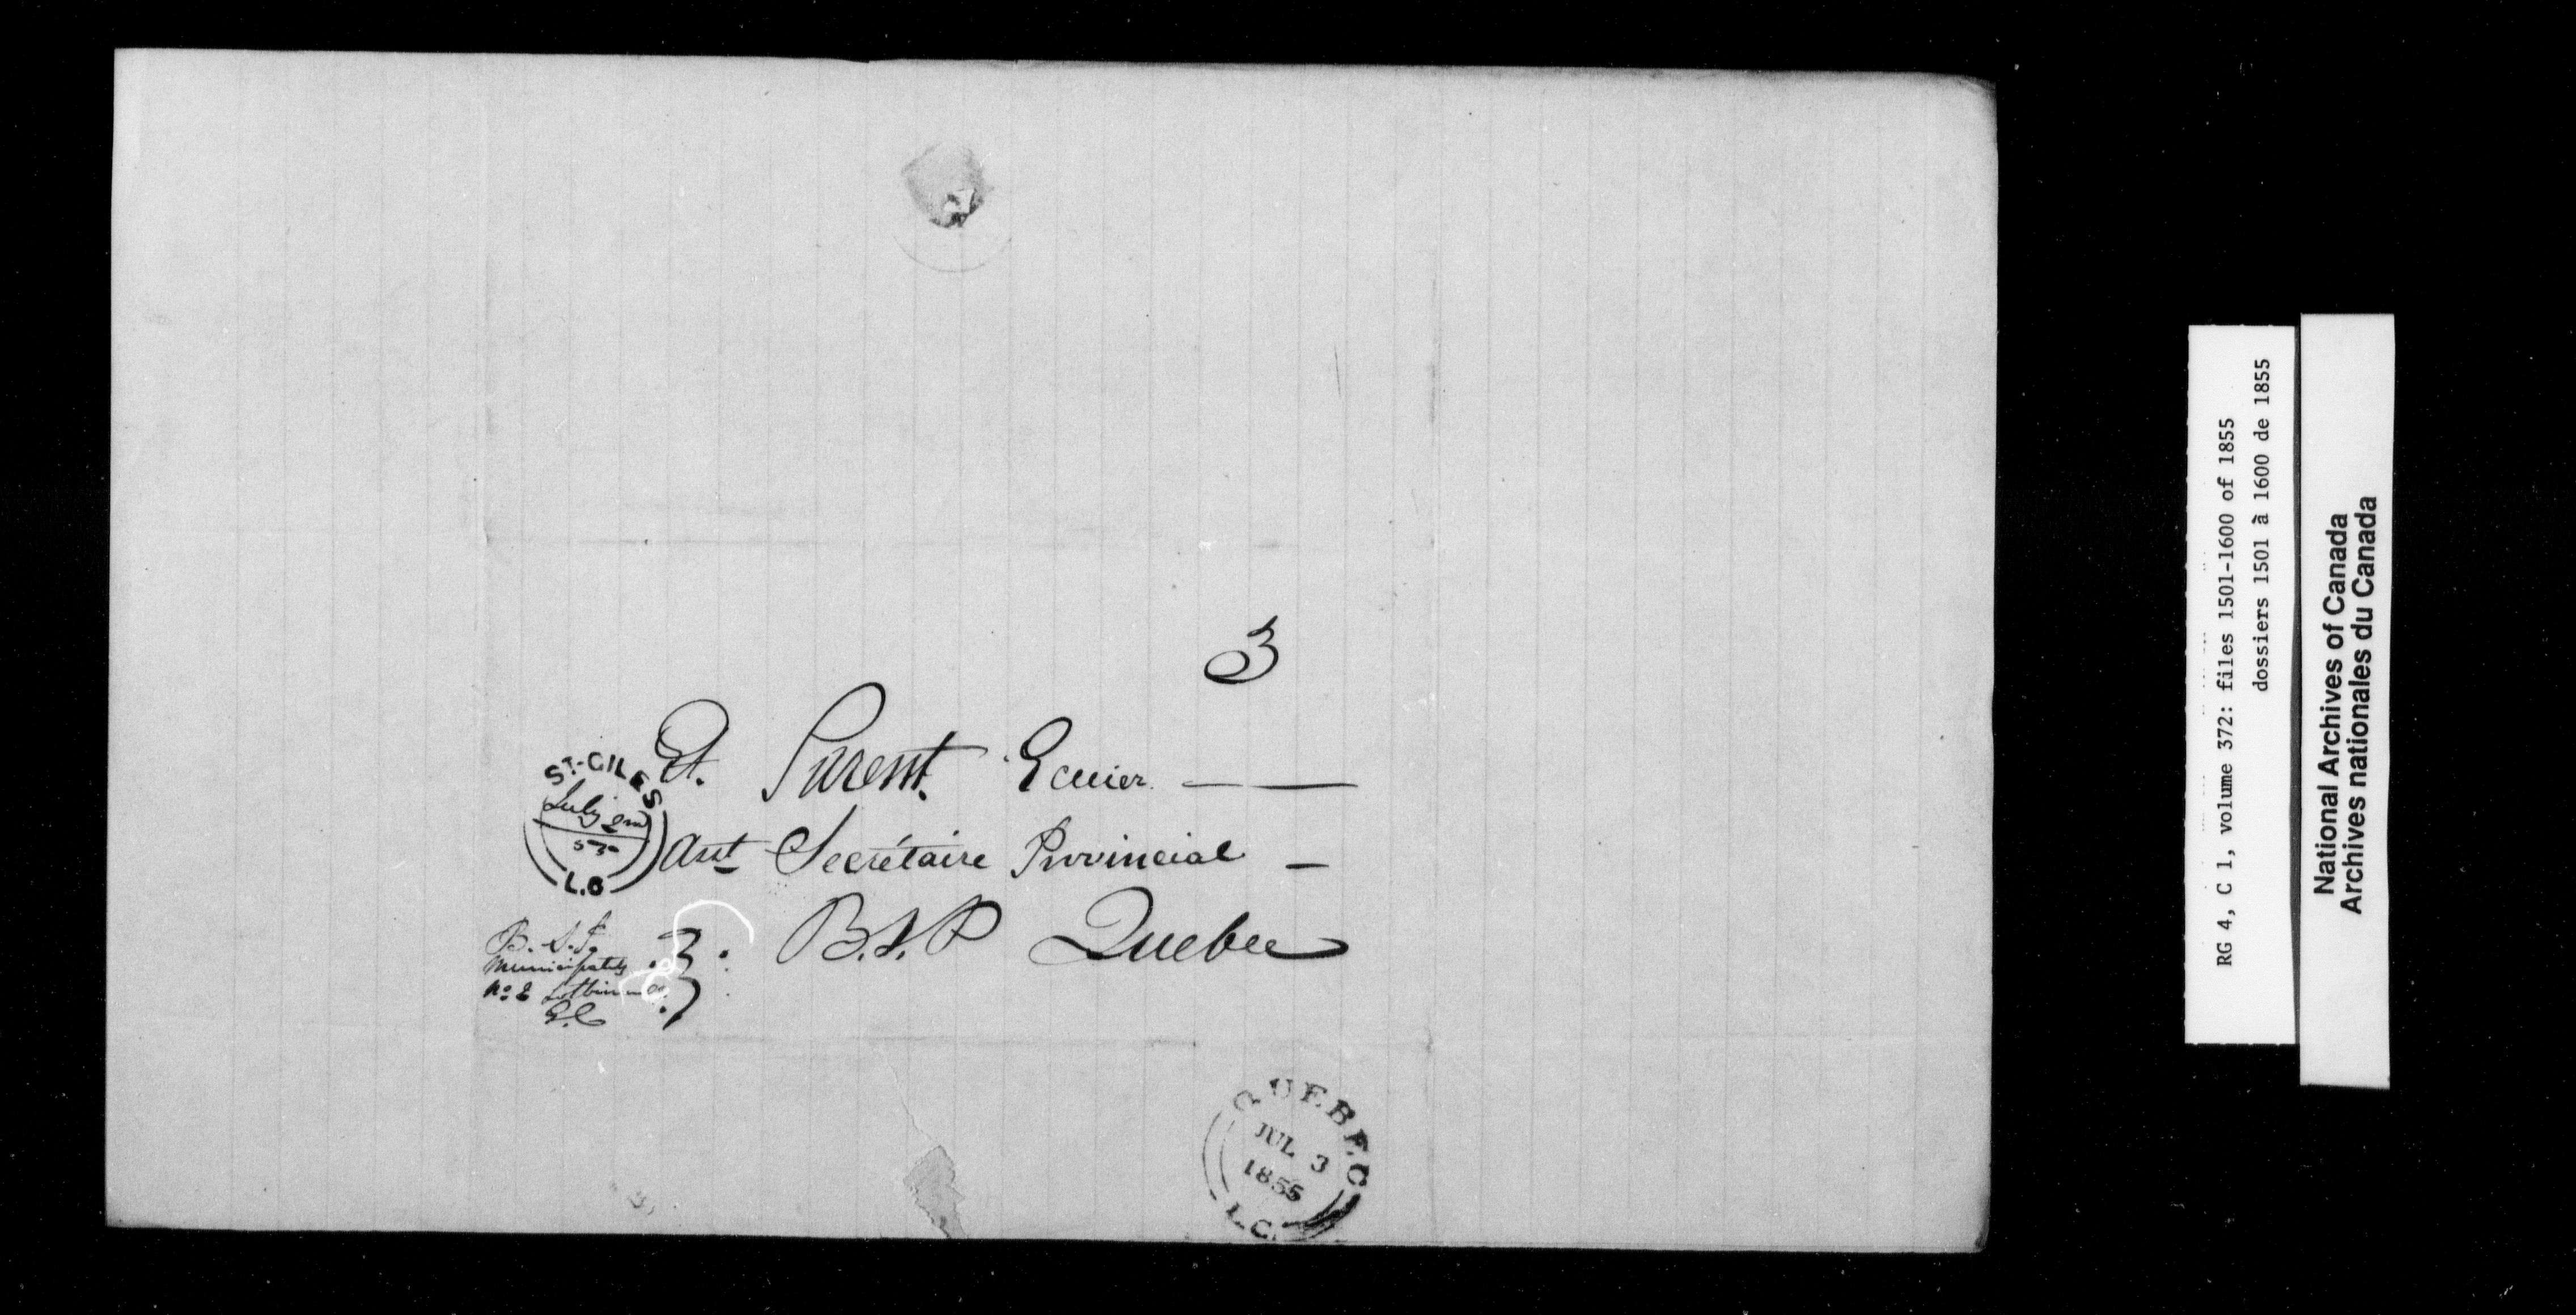 3
Et. Parent. Ecuier. — —
Asst Secrétaire Provincial —
B.S.P Quebec
ST-GILES
July 2nd
55
L.C
B. S. P.
Municipality
No 2 Lotbiniere
3
QUEBEC
JUL 3
1855
L.C.
RG 4, C 1, volume 372: files 1501-1600 of 1855
dossiers 1501 à 1600 de 1855
National Archives of Canada
Archives nationales du Canada